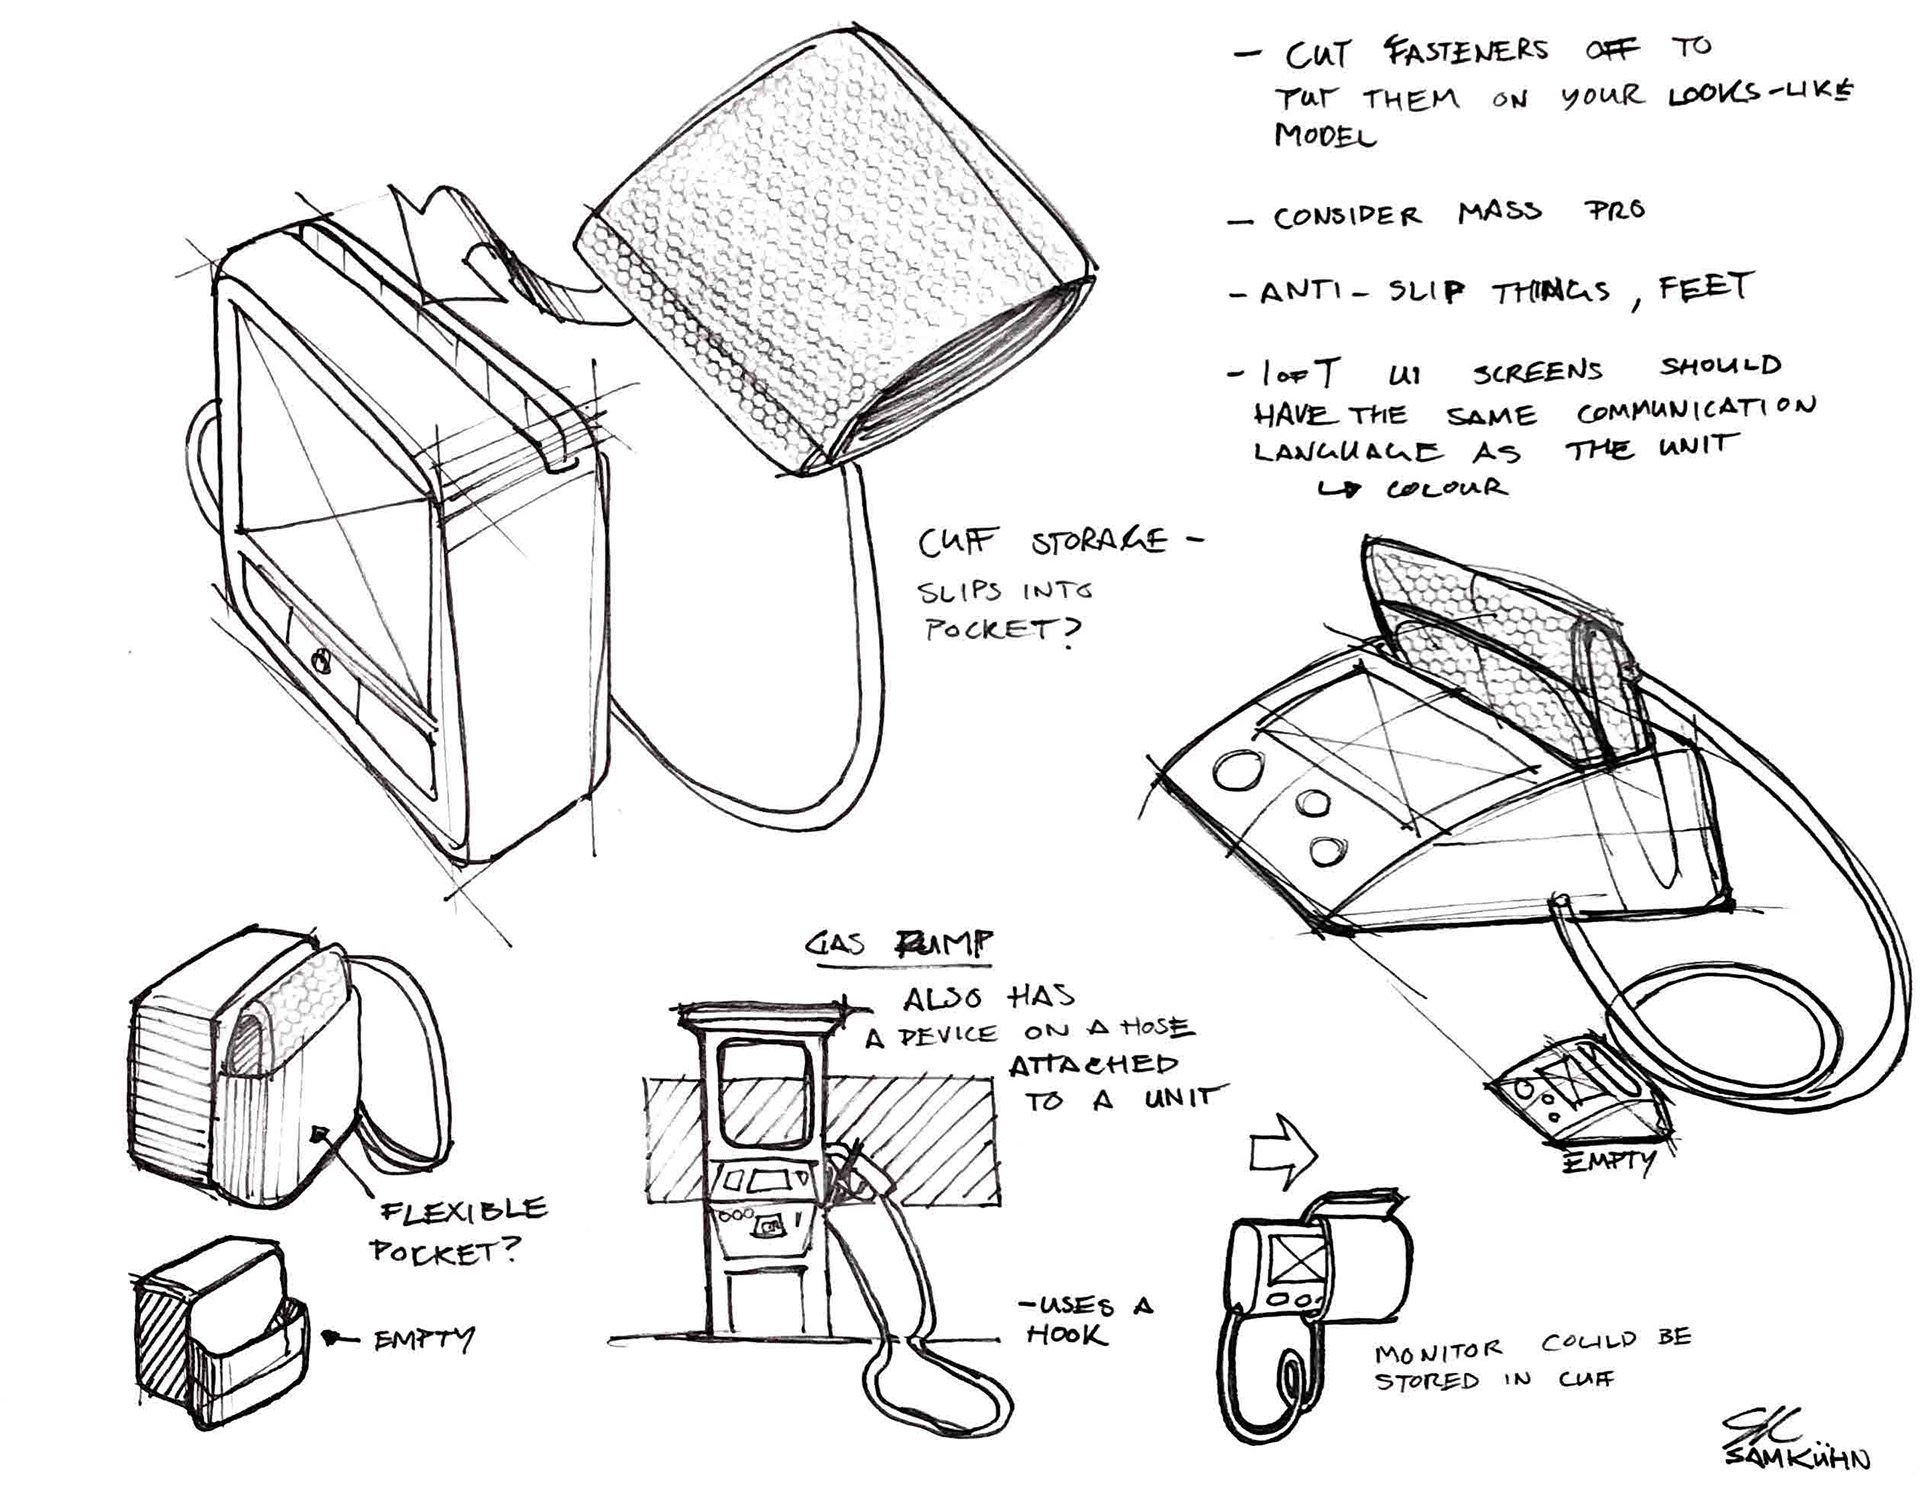 - CUT FASTENERS OFF TO
PUT THEM ON YOUR LOOKS-LIKE
MODEL
- CONSIDER MASS PRO
- ANTI-SLIP THINGS, FEET
- UI SCREENS SHOULD
HAVE THE SAME COMMUNICATION
LANGUAGE AS THE UNIT
↳ COLOUR
CUFF STORAGE -
SLIPS INTO
POCKET?
GAS PUMP
ALSO HAS
A DEVICE ON A HOSE
ATTACHED
TO A UNIT
EMPTY
FLEXIBLE
POCKET?
EMPTY
- USES A
HOOK
MONITOR COULD BE
STORED IN CUFF
SAM KÜHN